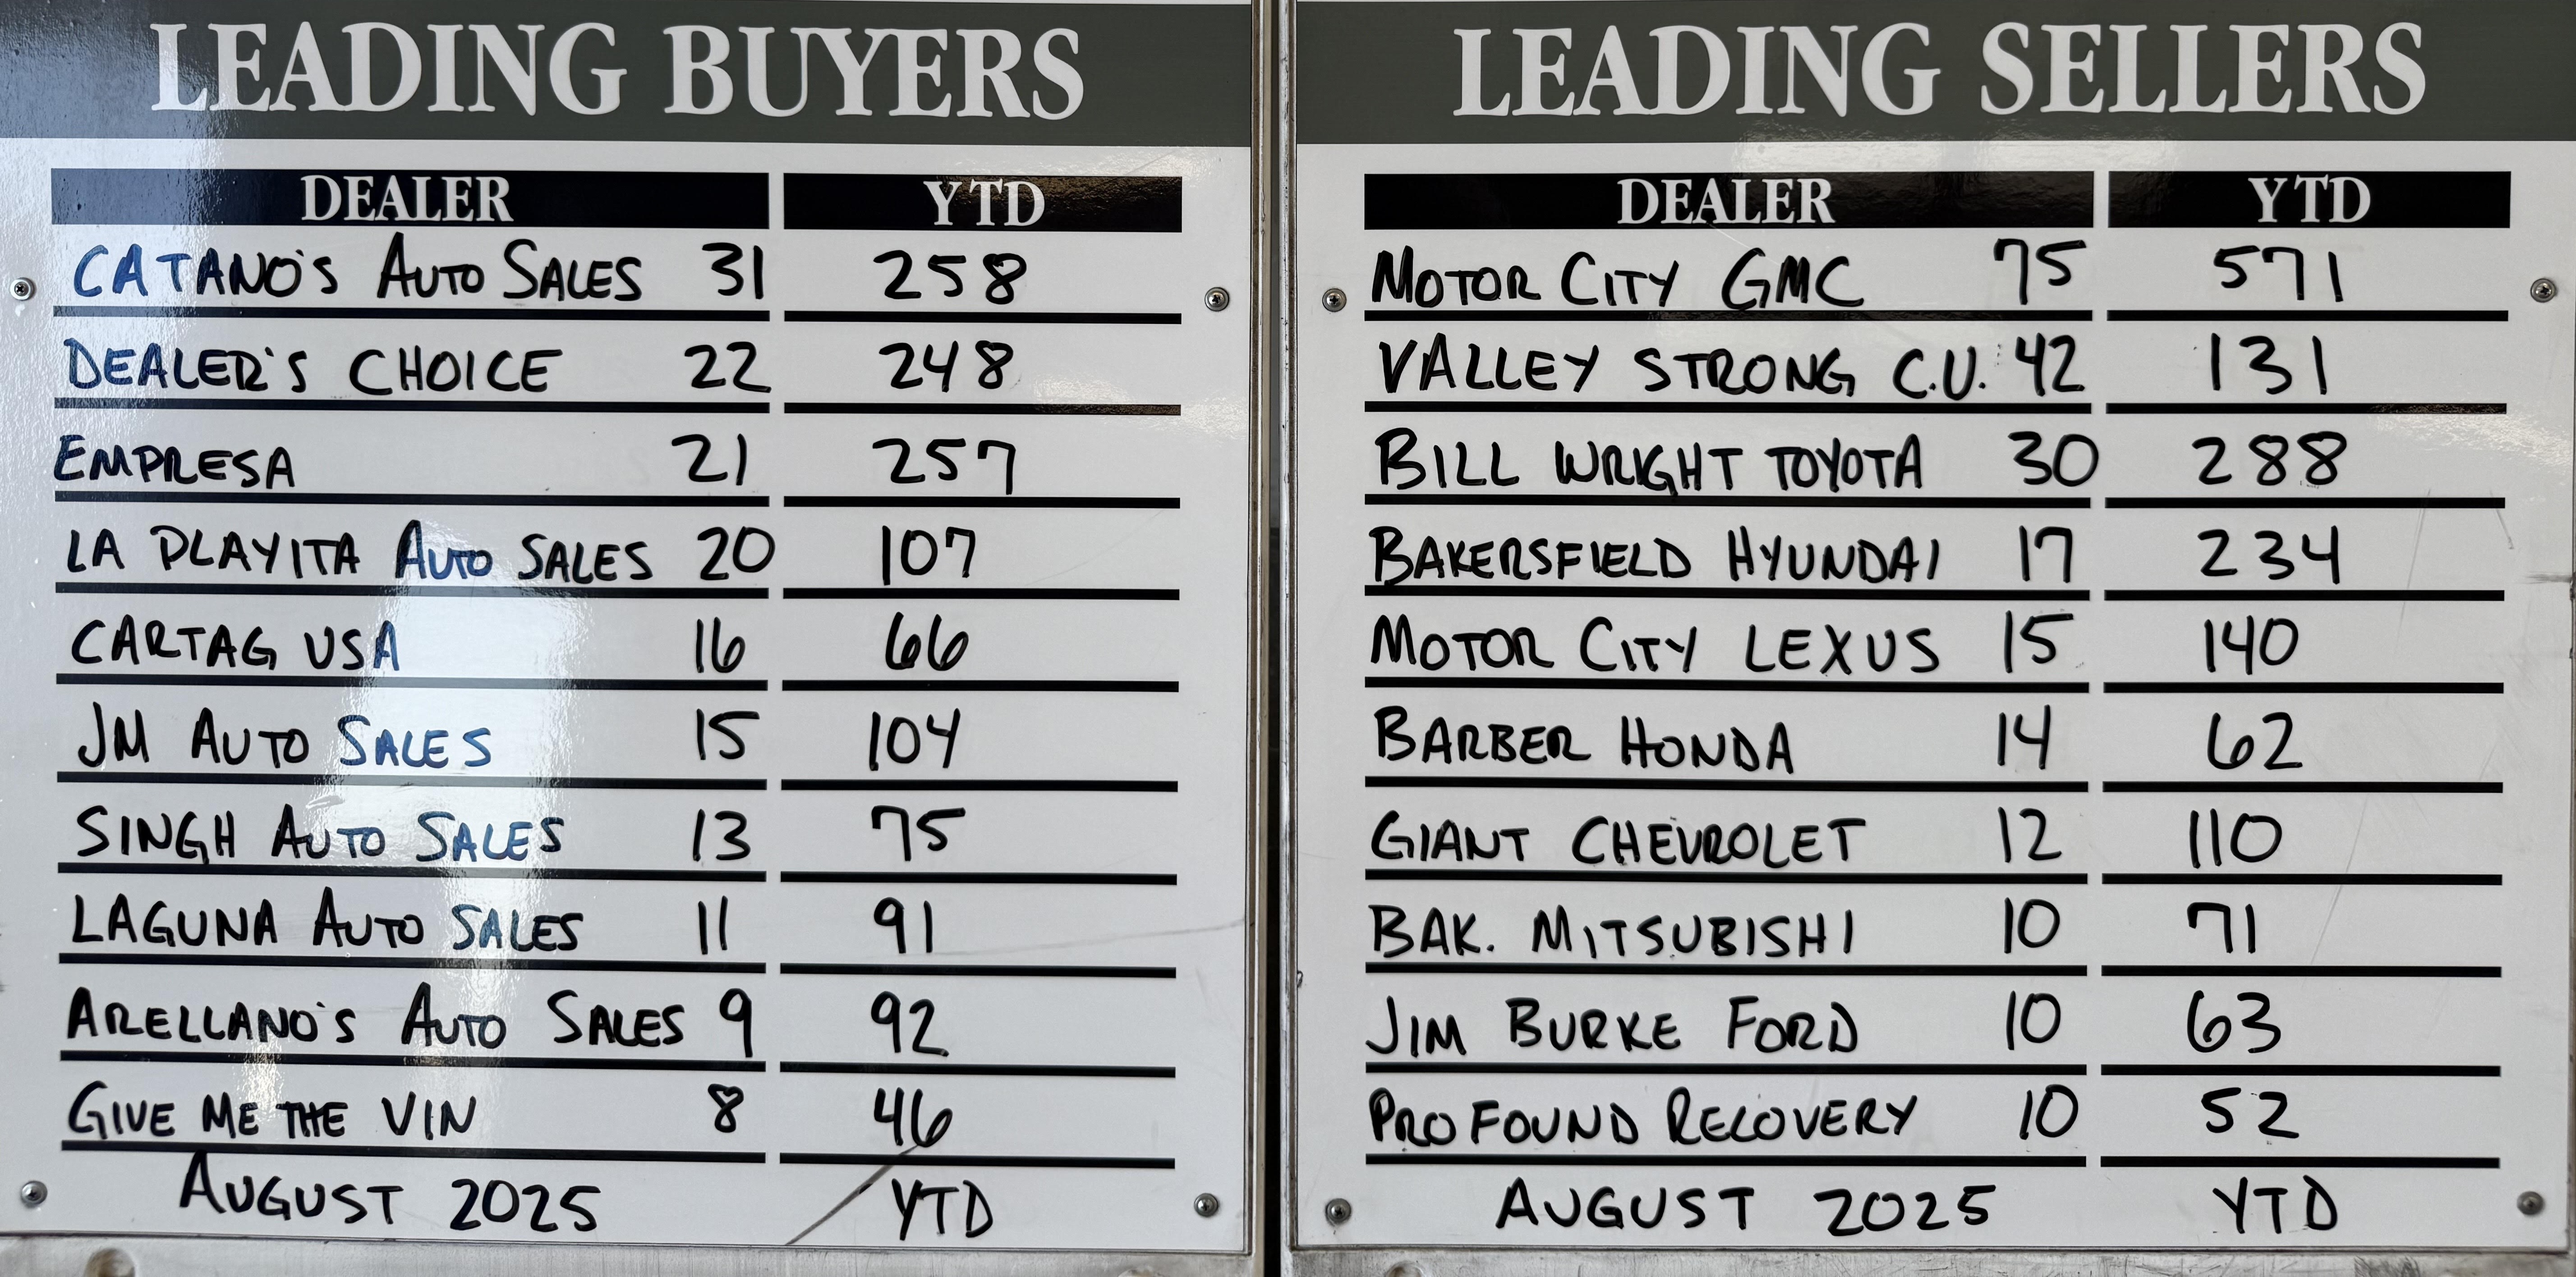 LEADING BUYERS
DEALER YTD
CATANO'S AUTO SALES 31 258
DEALER'S CHOICE 22 248
EMPRESA 21 257
LA PLAYITA AUTO SALES 20 107
CARTAG USA 16 66
JM AUTO SALES 15 104
SINGH AUTO SALES 13 75
LAGUNA AUTO SALES 11 91
ARELLANO'S AUTO SALES 9 92
GIVE ME THE VIN 8 46
AUGUST 2025 YTD
LEADING SELLERS
DEALER YTD
MOTOR CITY GMC 75 571
VALLEY STRONG C.U. 42 131
BILL WRIGHT TOYOTA 30 288
BAKERSFIELD HYUNDAI 17 234
MOTOR CITY LEXUS 15 140
BARBER HONDA 14 62
GIANT CHEVROLET 12 110
BAK. MITSUBISHI 10 71
JIM BURKE FORD 10 63
PROFOUND RECOVERY 10 52
AUGUST 2025 YTD